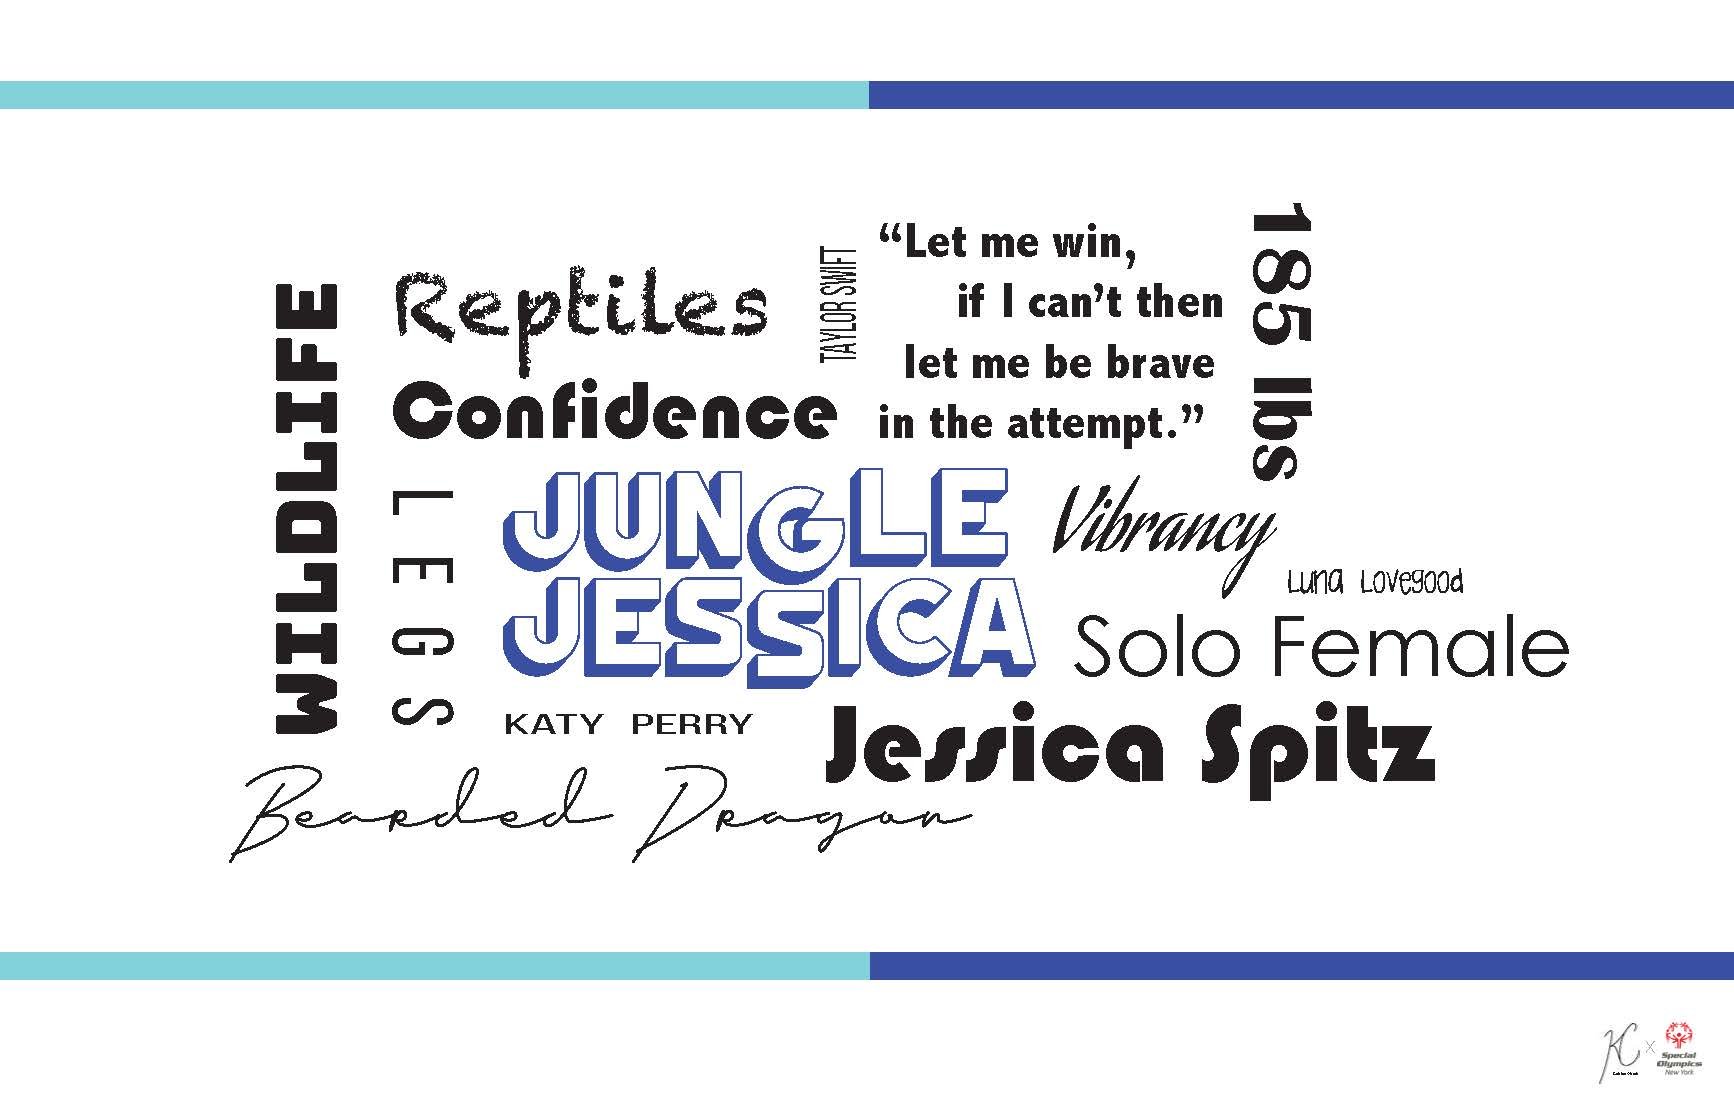 WILDLIFE
Reptiles
TAYLOR SWIFT
“Let me win,
if I can’t then
let me be brave
in the attempt.”
185 lbs
Confidence
LEGS
JUNGLE
JESSICA
Vibrancy
Luna Lovegood
Solo Female
KATY PERRY
Jessica Spitz
Bearded Dragon
KC X
Special
Olympics
New York